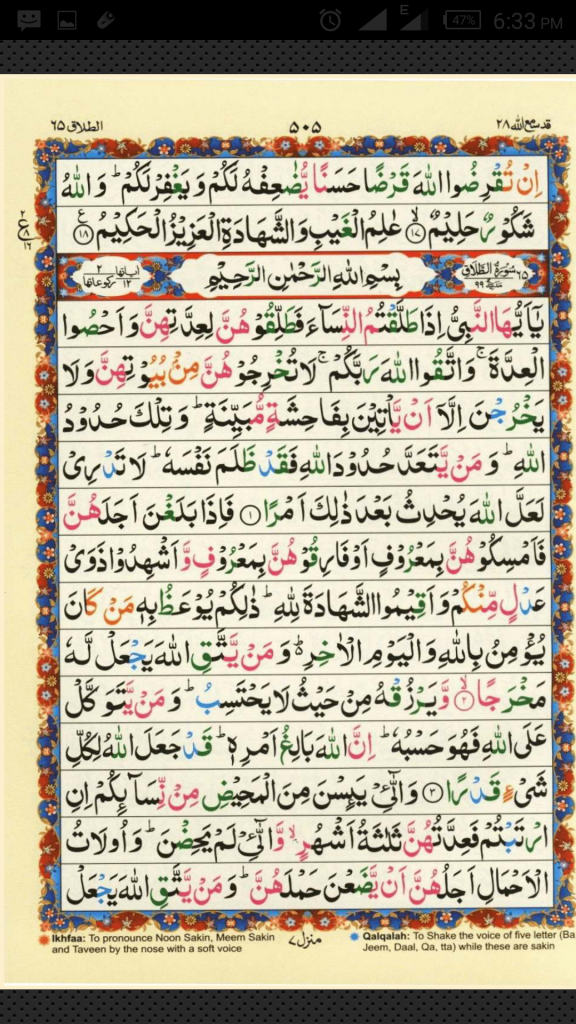 E 47% 6:33 PM
الطلاق ٦٥ ٥٠٥ قد سمع الله ٢٨
اِنْ تُقْرِضُوا اللّٰهَ قَرْضًا حَسَنًا يُّضٰعِفْهُ لَكُمْ وَ يَغْفِرْ لَكُمْ ؕ وَ اللّٰهُ
شَكُوْرٌ حَلِيْمٌ ۙ﴿۱۷﴾ عٰلِمُ الْغَيْبِ وَ الشَّهَادَةِ الْعَزِيْزُ الْحَكِيْمُ ﴿۱۸﴾
ع ٢ ٨ ١٦
٦٥ سُوْرَةُ الطَّلَاقِ مَدَنِيَّةٌ ٩٩ بِسْمِ اللّٰهِ الرَّحْمٰنِ الرَّحِيْمِ اٰيَاتُهَا ١٢ رُكُوْعَاتُهَا ٢
يٰۤاَيُّهَا النَّبِيُّ اِذَا طَلَّقْتُمُ النِّسَآءَ فَطَلِّقُوْهُنَّ لِعِدَّتِهِنَّ وَ اَحْصُوا
الْعِدَّةَ ۚ وَ اتَّقُوا اللّٰهَ رَبَّكُمْ ۚ لَا تُخْرِجُوْهُنَّ مِنْۢ بُيُوْتِهِنَّ وَ لَا
يَخْرُجْنَ اِلَّاۤ اَنْ يَّاْتِيْنَ بِفَاحِشَةٍ مُّبَيِّنَةٍ ؕ وَ تِلْكَ حُدُوْدُ
اللّٰهِ ؕ وَ مَنْ يَّتَعَدَّ حُدُوْدَ اللّٰهِ فَقَدْ ظَلَمَ نَفْسَهٗ ؕ لَا تَدْرِيْ
لَعَلَّ اللّٰهَ يُحْدِثُ بَعْدَ ذٰلِكَ اَمْرًا ﴿۱﴾ فَاِذَا بَلَغْنَ اَجَلَهُنَّ
فَاَمْسِكُوْهُنَّ بِمَعْرُوْفٍ اَوْ فَارِقُوْهُنَّ بِمَعْرُوْفٍ وَّ اَشْهِدُوْا ذَوَيْ
عَدْلٍ مِّنْكُمْ وَ اَقِيْمُوا الشَّهَادَةَ لِلّٰهِ ؕ ذٰلِكُمْ يُوْعَظُ بِهٖ مَنْ كَانَ
يُؤْمِنُ بِاللّٰهِ وَ الْيَوْمِ الْاٰخِرِ ۬ؕ وَ مَنْ يَّتَّقِ اللّٰهَ يَجْعَلْ لَّهٗ
مَخْرَجًا ۙ﴿۲﴾ وَّ يَرْزُقْهُ مِنْ حَيْثُ لَا يَحْتَسِبُ ؕ وَ مَنْ يَّتَوَكَّلْ
عَلَى اللّٰهِ فَهُوَ حَسْبُهٗ ؕ اِنَّ اللّٰهَ بَالِغُ اَمْرِهٖ ؕ قَدْ جَعَلَ اللّٰهُ لِكُلِّ
شَيْءٍ قَدْرًا ﴿۳﴾ وَ الّٰٓـِٔيْ يَىِٕسْنَ مِنَ الْمَحِيْضِ مِنْ نِّسَآىِٕكُمْ اِنِ
ارْتَبْتُمْ فَعِدَّتُهُنَّ ثَلٰثَةُ اَشْهُرٍ ۙ وَّ الّٰٓـِٔيْ لَمْ يَحِضْنَ ؕ وَ اُولَاتُ
الْاَحْمَالِ اَجَلُهُنَّ اَنْ يَّضَعْنَ حَمْلَهُنَّ ؕ وَ مَنْ يَّتَّقِ اللّٰهَ يَجْعَلْ
Ikhfaa: To pronounce Noon Sakin, Meem Sakin
and Taveen by the nose with a soft voice
منزل ٧
Qalqalah: To Shake the voice of five letter (Ba
Jeem, Daal, Qa, tta) while these are sakin